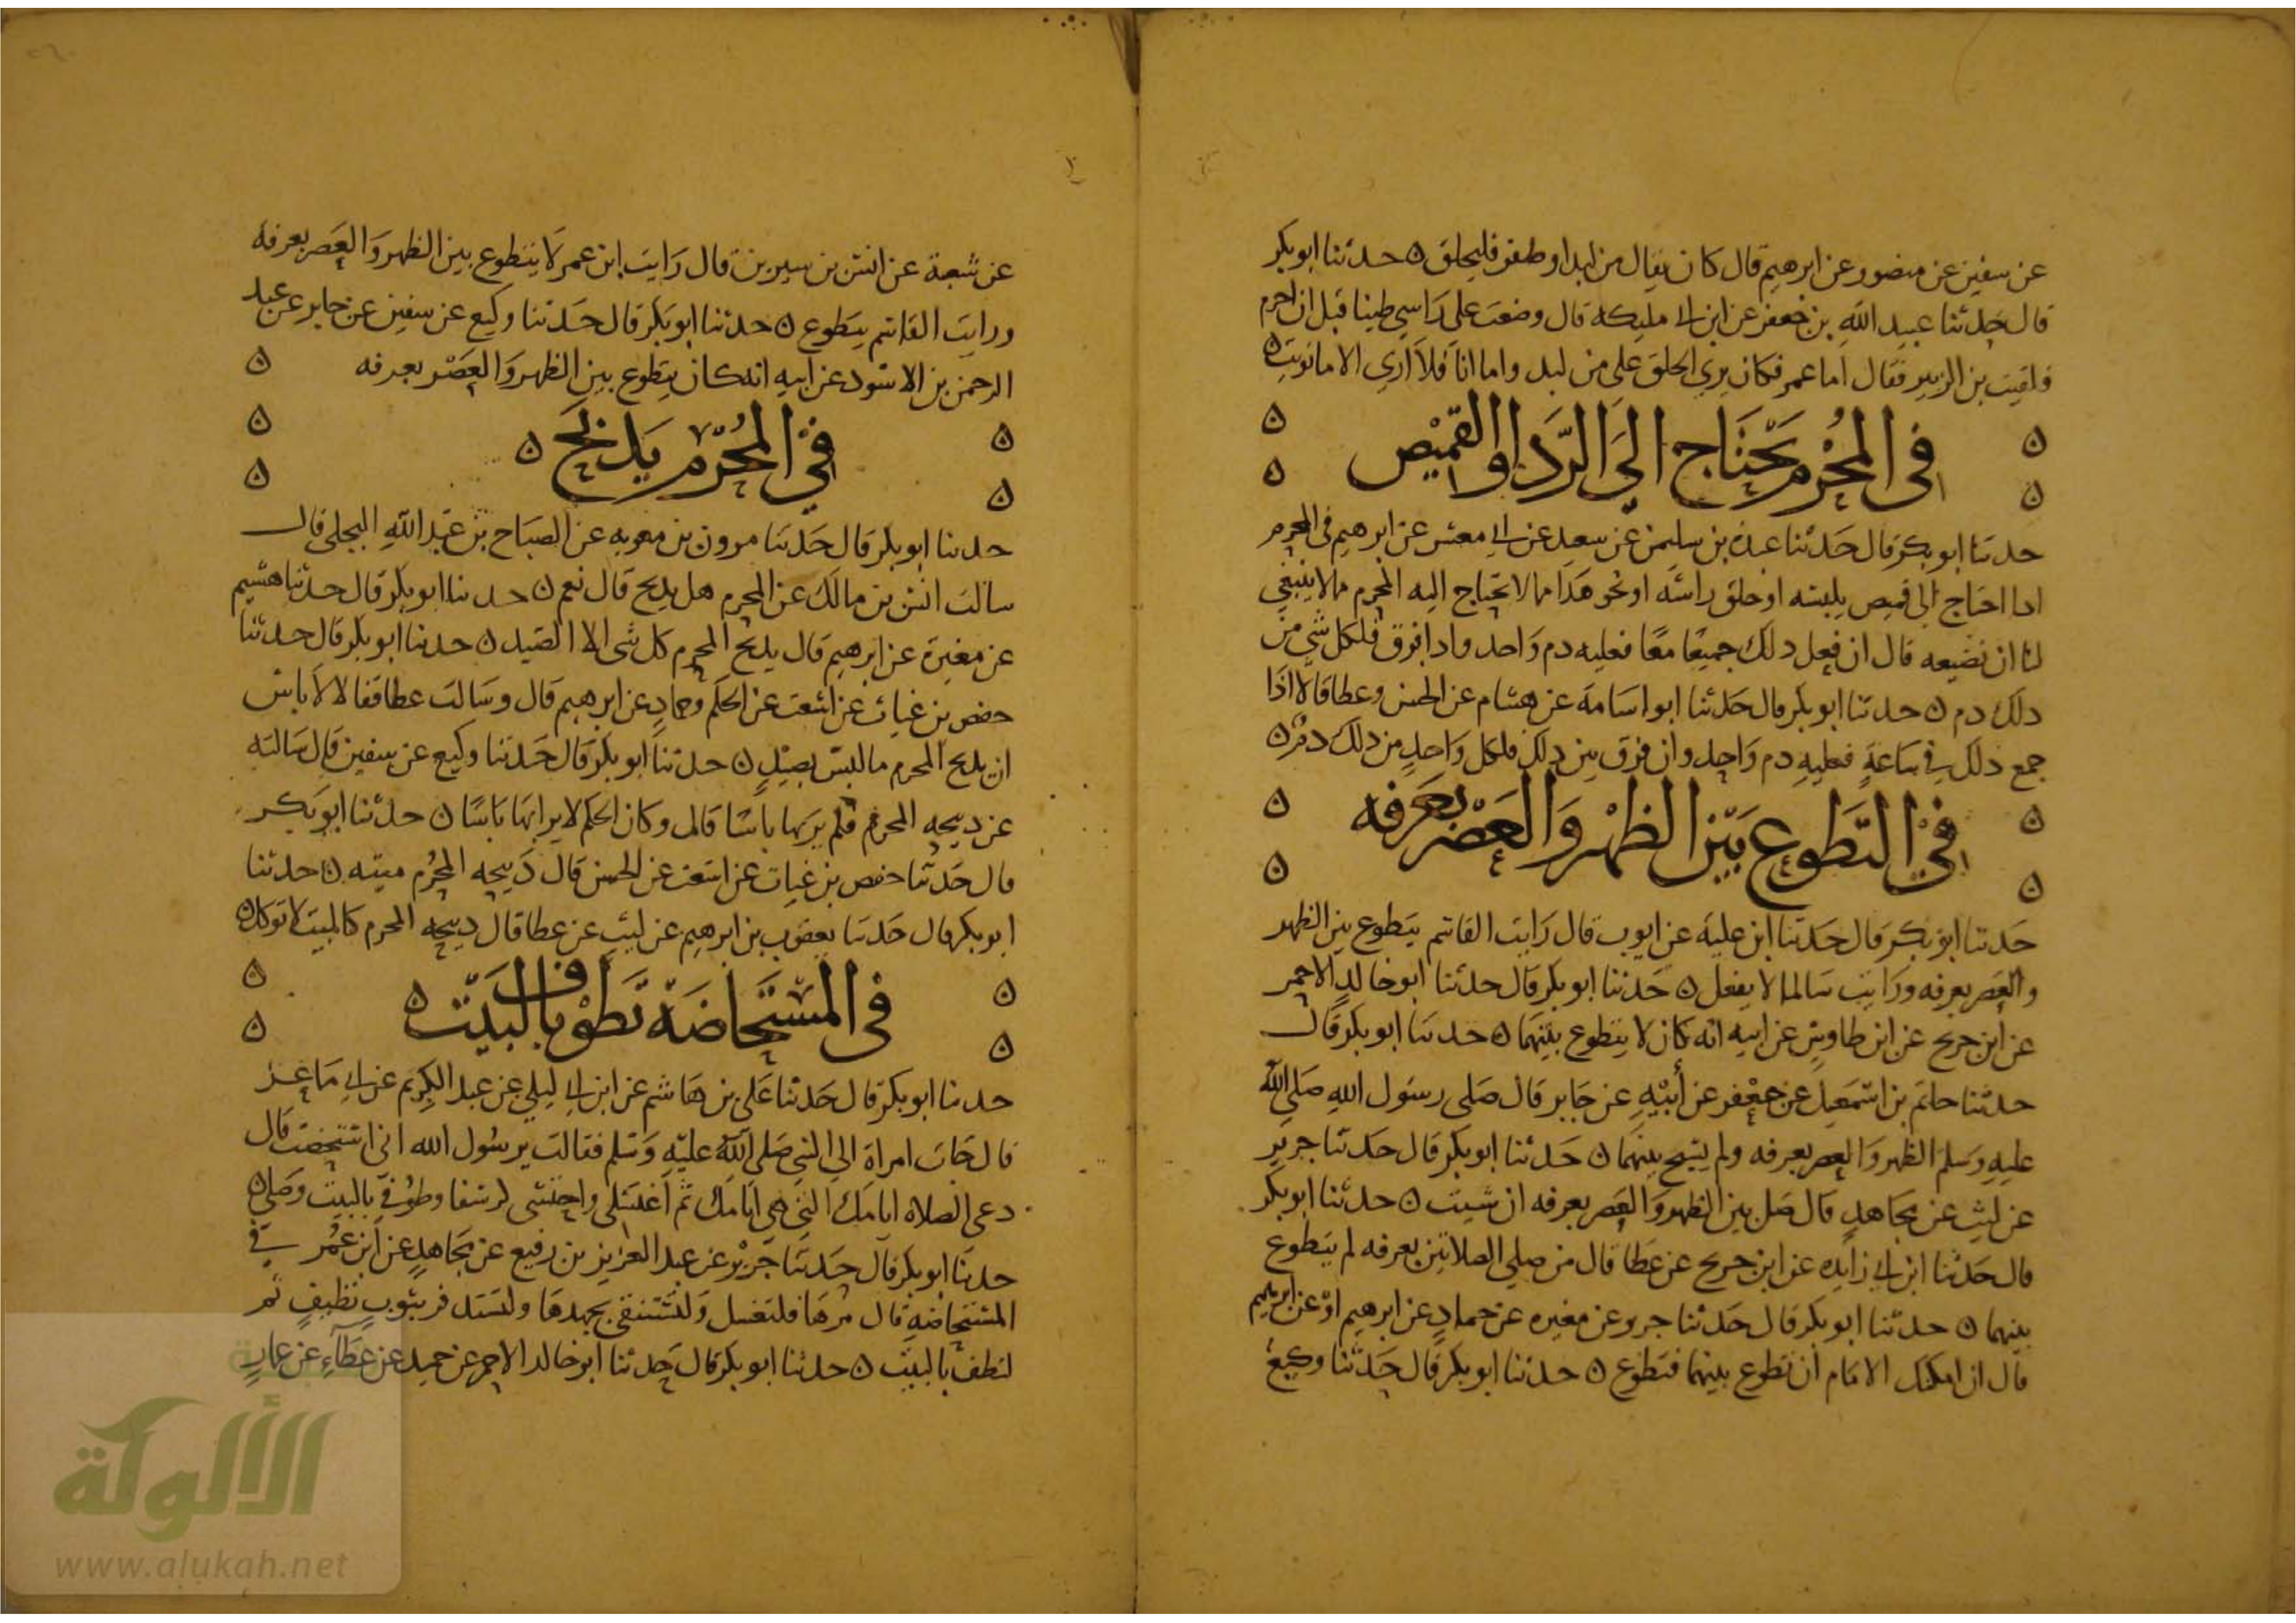 عن سفين عن منصور عن ابرهيم قال كان يقال من لبد او ظفر فليحلق ه حدثنا ابو بكر
قال حدثنا عبيد الله بن جعفر عن ابن ابي مليكه قال وضعت على راسي طينا قبل ان احرم
فلقيت بن الزبير فقال اما عمر فكان يري الحلق على من لبد واما انا فلا اري الا ما نويت ه
في المحرم يحتاج الي الردا او القميص
حدثنا ابو بكر قال حدثنا عبدة بن سليمن عن سعيد عن ابي معشر عن ابرهيم في المحرم
اذا احتاج الى قميص يلبسه او حلق راسه او نحو هذا مما لا يحتاج اليه المحرم مما لا ينبغي
لنا ان نضيعه قال ان فعل ذلك جميعا معا فعليه دم واحد واذا فرق فلكل شي من
ذلك دم ه حدثنا ابو بكر قال حدثنا ابو اسامة عن هشام عن الحسن وعطا قالا اذا
جمع ذلك في ساعة فعليه دم واحد وان فرق بين ذلك فلكل واحد من ذلك دم ه
في التطوع بين الظهر والعصر بعرفه
حدثنا ابو بكر قال حدثنا ابن علية عن ايوب قال رايت القاسم يتطوع بين الظهر
والعصر بعرفه ورايت سالما لا يفعل ه حدثنا ابو بكر قال حدثنا ابو خالد الاحمر
عن ابن جريج عن ابن طاوس عن ابيه انه كان لا يتطوع بينهما ه حدثنا ابو بكر قال
حدثنا حاتم بن اسمعيل عن جعفر عن أبيه عن جابر قال صلى رسول الله صلى الله
عليه وسلم الظهر والعصر بعرفه ولم يسبح بينهما ه حدثنا ابو بكر قال حدثنا جرير
عن ليث عن مجاهد قال صل بين الظهر والعصر بعرفه ان شيت ه حدثنا ابو بكر
قال حدثنا ابن ابي زايده عن ابن جريج عن عطا قال من صلي الصلاتين بعرفه لم يتطوع
بينهما ه حدثنا ابو بكر قال حدثنا جرير عن مغيره عن حماد عن ابرهيم او عن ابرهيم
قال ان امكنك الامام ان تطوع بينهما فتطوع ه حدثنا ابو بكر قال حدثنا وكيع
عن شعبة عن انس بن سيرين قال رايت ابن عمر لا يتطوع بين الظهر والعصر بعرفه
ورايت القاسم يتطوع ه حدثنا ابو بكر قال حدثنا وكيع عن سفين عن جابر عن عبد
الرحمن بن الاسود عن ابيه انه كان يتطوع بين الظهر والعصر بعرفه
في المحرم يذبح
حدثنا ابو بكر قال حدثنا مرون بن معويه عن الصباح بن عبد الله البجلي قال
سالت انس بن مالك عن المحرم هل يذبح قال نعم ه حدثنا ابو بكر قال حدثنا هشيم
عن مغيرة عن ابرهيم قال يذبح المحرم كل شى الا الصيد ه حدثنا ابو بكر قال حدثنا
حفص بن غياث عن اشعث عن الحكم وحماد عن ابرهيم قال وسالت عطا فقالا لا باس
ان يذبح المحرم ما ليس بصيد ه حدثنا ابو بكر قال حدثنا وكيع عن سفين قال سالته
عن ذبيحه المحرم فلم ير بها باسا قال وكان الحكم لا يرا بها باسا ه حدثنا ابو بكر
قال حدثنا حفص بن غياث عن اشعث عن الحسن قال ذبيحه المحرم ميته ه حدثنا
ابو بكر قال حدثنا يعقوب بن ابرهيم عن ليث عن عطا قال ذبيحه المحرم كالميت لا توكل ه
في المستحاضة تطوف بالبيت
حدثنا ابو بكر قال حدثنا على بن هاشم عن ابن ابي ليلي عن عبد الكريم عن ابي ماعز
قال جات امراة الي النبي صلى الله عليه وسلم فقالت يرسول الله اني استحضت قال
دعي الصلاه ايامك التي هي ايامك ثم اغتسلي واحتشى كرسفا وطوفي بالبيت وصلي ه
حدثنا ابو بكر قال حدثنا جرير عن عبد العزيز بن رفيع عن مجاهد عن ابن عمر في
المستحاضه قال مرها فلتغسل ولتستنقى بجهدها ولتستدفر بثوب نظيف ثم
لتطف بالبيت ه حدثنا ابو بكر قال حدثنا ابو خالد الاحمر عن حميد عن عطاء عن عمار
الألوكة
www.alukah.net